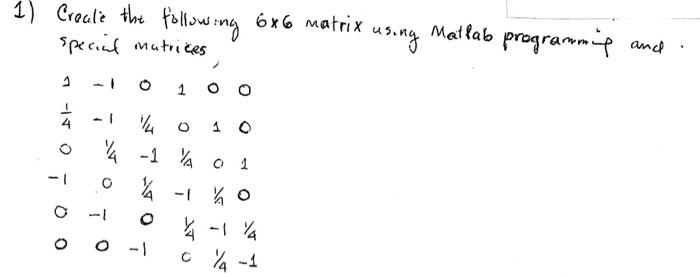 1) Create the following 6x6 matrix using Matlab programming and
special matrices
1 -1 0 1 0 0
1/4 -1 1/4 0 1 0
0 1/4 -1 1/4 0 1
-1 0 1/4 -1 1/4 0
0 -1 0 1/4 -1 1/4
0 0 -1 0 1/4 -1